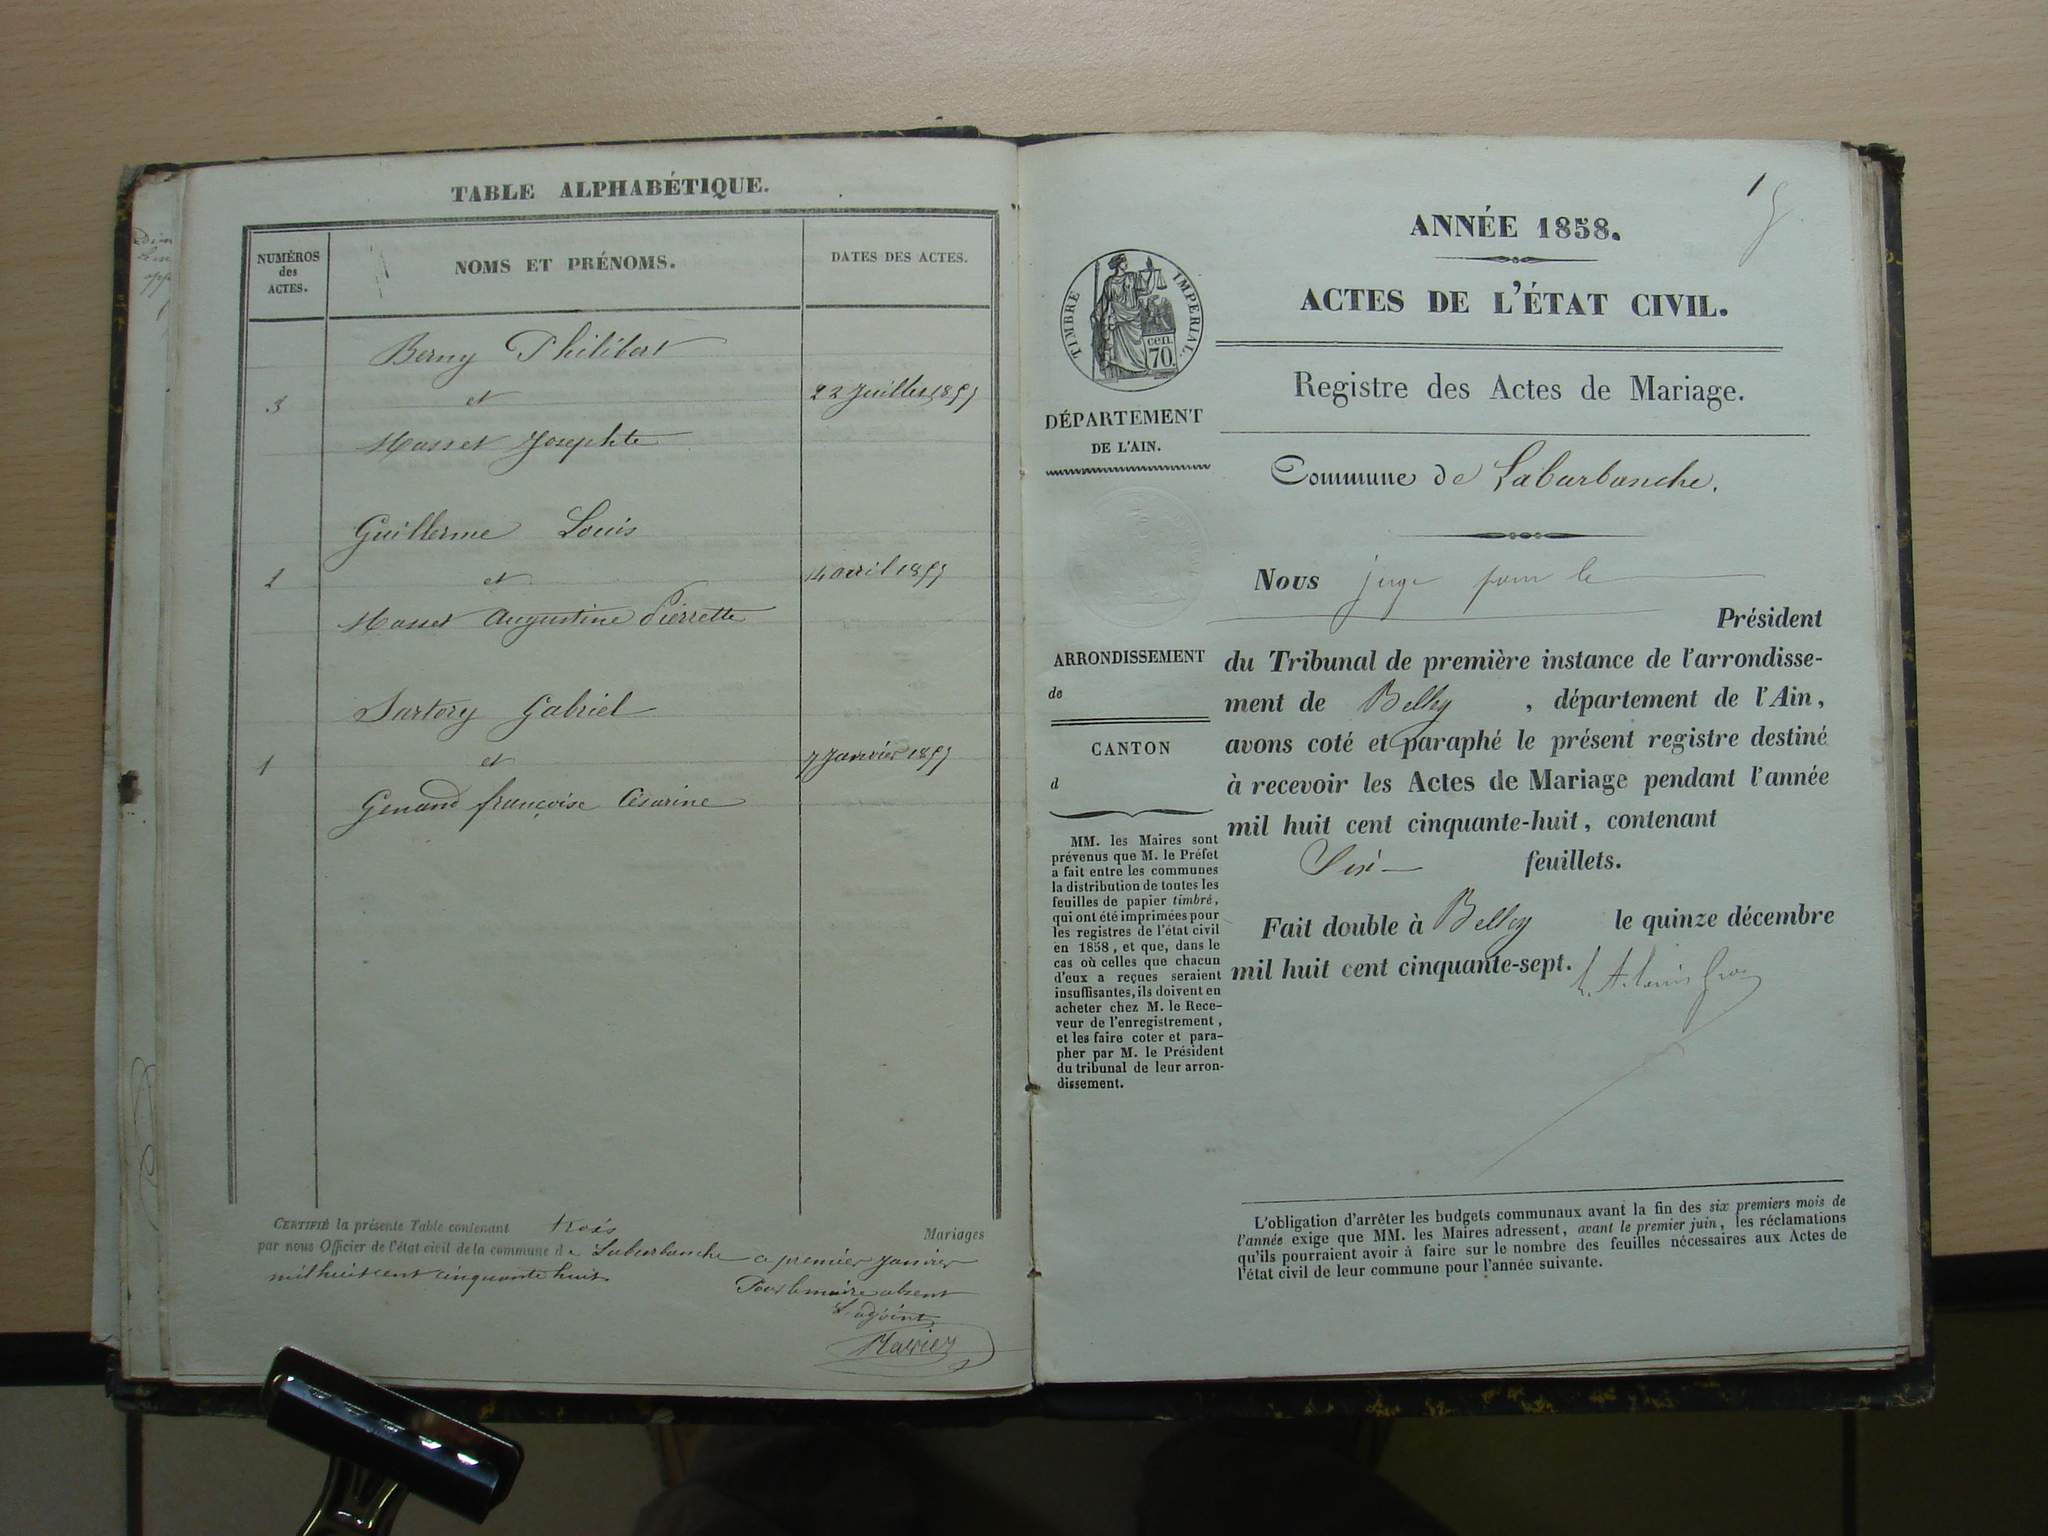 TABLE ALPHABÉTIQUE.
NUMÉROS
des
ACTES.
NOMS ET PRÉNOMS.
DATES DES ACTES.
Berny Philibert
3
et
22 Juillet 1857
Masset Josephte
Guillerme Louis
2
et
14 avril 1857
Masset Augustine Pierrette
Sartory Gabriel
1
et
7 Janvier 1857
Genand françoise Césarine
CERTIFIÉ la présente Table contenant trois Mariages
par nous Officier de l'état civil de la commune de Labarbanche ce premier Janvier
mil huit cent cinquante huit
Pour le maire absent
L'adjoint
1
ANNÉE 1858.
ACTES DE L'ÉTAT CIVIL.
TIMBRE IMPÉRIAL.
cen.
70.
Registre des Actes de Mariage.
DÉPARTEMENT
DE L'AIN.
Commune de Labarbanche.
Nous juge pour le
Président
du Tribunal de première instance de l'arrondisse-
ment de Belley, département de l'Ain,
avons coté et paraphé le présent registre destiné
à recevoir les Actes de Mariage pendant l'année
mil huit cent cinquante-huit, contenant
Six feuillets.
Fait double à Belley le quinze décembre
mil huit cent cinquante-sept.
ARRONDISSEMENT
de
CANTON
d
MM. les Maires sont
prévenus que M. le Préfet
a fait entre les communes
la distribution de toutes les
feuilles de papier timbré,
qui ont été imprimées pour
les registres de l'état civil
en 1858, et que, dans le
cas où celles que chacun
d'eux a reçues seraient
insuffisantes, ils doivent en
acheter chez M. le Rece-
veur de l'enregistrement,
et les faire coter et para-
pher par M. le Président
du tribunal de leur arron-
dissement.
L'obligation d'arrêter les budgets communaux avant la fin des six premiers mois de
l'année exige que MM. les Maires adressent, avant le premier juin, les réclamations
qu'ils pourraient avoir à faire sur le nombre des feuilles nécessaires aux Actes de
l'état civil de leur commune pour l'année suivante.